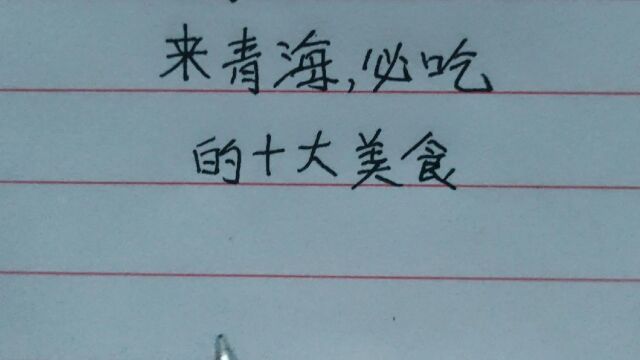 来青海,必吃
的十大美食